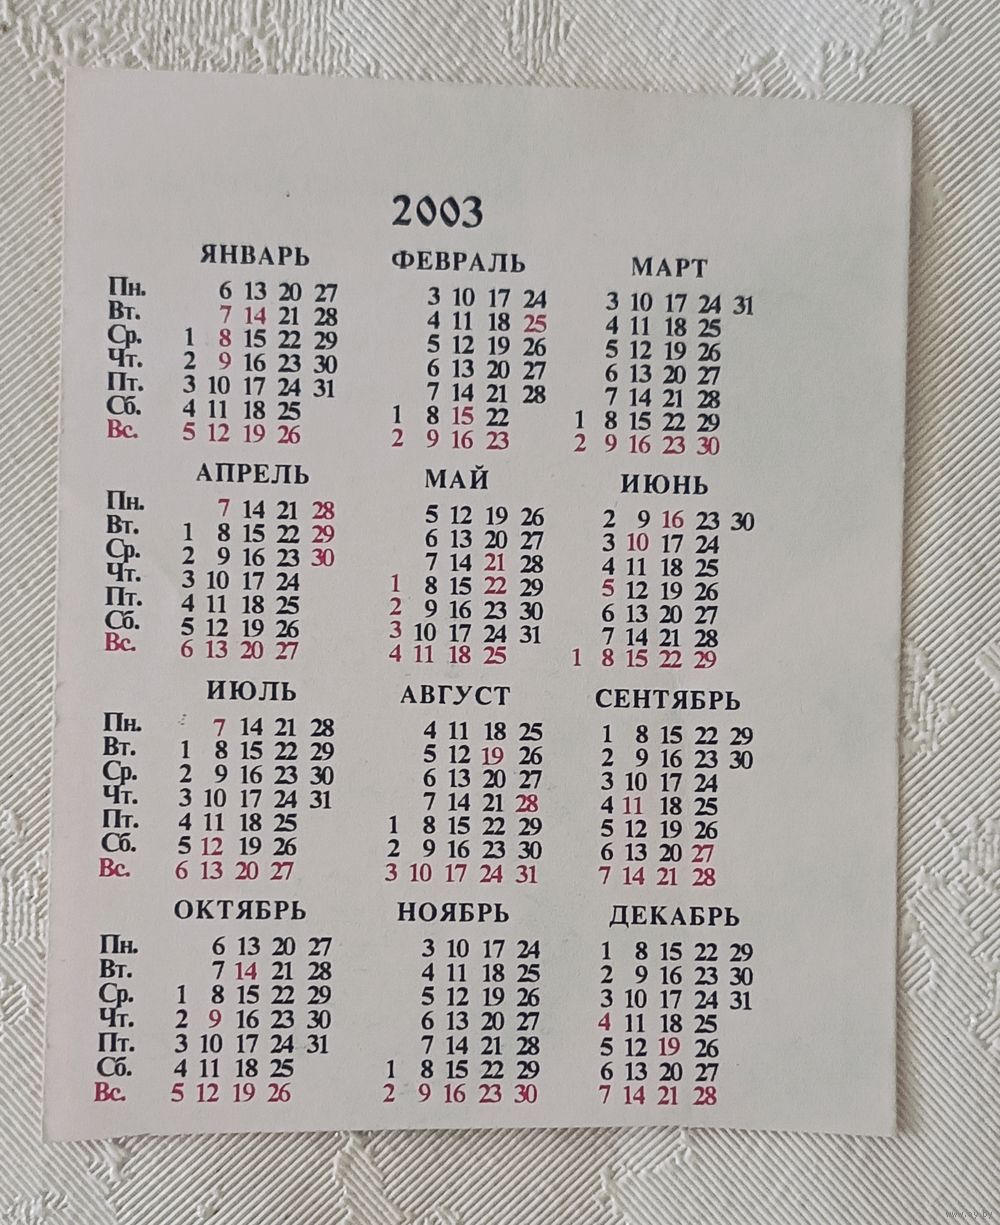 2003
ЯНВАРЬ ФЕВРАЛЬ МАРТ
Пн. 6 13 20 27 3 10 17 24 3 10 17 24 31
Вт. 7 14 21 28 4 11 18 25 4 11 18 25
Ср. 1 8 15 22 29 5 12 19 26 5 12 19 26
Чт. 2 9 16 23 30 6 13 20 27 6 13 20 27
Пт. 3 10 17 24 31 7 14 21 28 7 14 21 28
Сб. 4 11 18 25 1 8 15 22 1 8 15 22 29
Вс. 5 12 19 26 2 9 16 23 2 9 16 23 30
АПРЕЛЬ МАЙ ИЮНЬ
Пн. 7 14 21 28 5 12 19 26 2 9 16 23 30
Вт. 1 8 15 22 29 6 13 20 27 3 10 17 24
Ср. 2 9 16 23 30 7 14 21 28 4 11 18 25
Чт. 3 10 17 24 1 8 15 22 29 5 12 19 26
Пт. 4 11 18 25 2 9 16 23 30 6 13 20 27
Сб. 5 12 19 26 3 10 17 24 31 7 14 21 28
Вс. 6 13 20 27 4 11 18 25 1 8 15 22 29
ИЮЛЬ АВГУСТ СЕНТЯБРЬ
Пн. 7 14 21 28 4 11 18 25 1 8 15 22 29
Вт. 1 8 15 22 29 5 12 19 26 2 9 16 23 30
Ср. 2 9 16 23 30 6 13 20 27 3 10 17 24
Чт. 3 10 17 24 31 7 14 21 28 4 11 18 25
Пт. 4 11 18 25 1 8 15 22 29 5 12 19 26
Сб. 5 12 19 26 2 9 16 23 30 6 13 20 27
Вс. 6 13 20 27 3 10 17 24 31 7 14 21 28
ОКТЯБРЬ НОЯБРЬ ДЕКАБРЬ
Пн. 6 13 20 27 3 10 17 24 1 8 15 22 29
Вт. 7 14 21 28 4 11 18 25 2 9 16 23 30
Ср. 1 8 15 22 29 5 12 19 26 3 10 17 24 31
Чт. 2 9 16 23 30 6 13 20 27 4 11 18 25
Пт. 3 10 17 24 31 7 14 21 28 5 12 19 26
Сб. 4 11 18 25 1 8 15 22 29 6 13 20 27
Вс. 5 12 19 26 2 9 16 23 30 7 14 21 28
www.ay.by